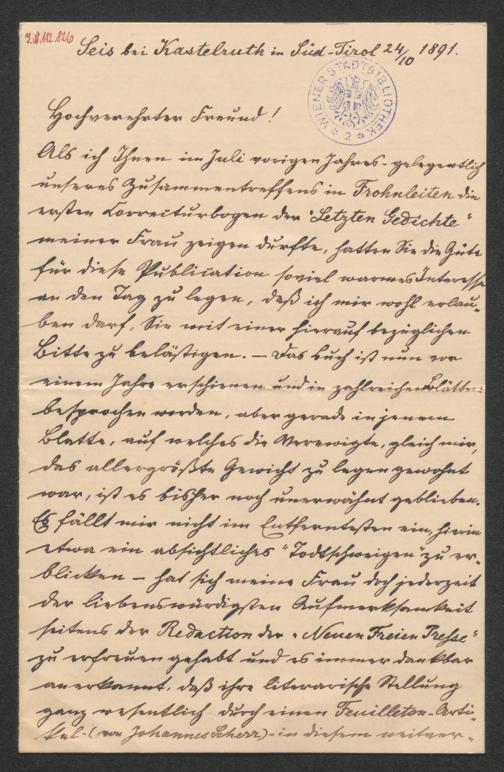 J.N. 112.826
Seis bei Kastelruth in Süd-Tirol 24/10 1891.
WIENER STADTBIBLIOTHEK
2
Hochverehrter Freund!
Als ich Ihnen im Juli vorigen Jahres - gelegentlich
unseres Zusammentreffens in Frohnleiten die
ersten Correcturbogen der "Letzten Gedichte"
meiner Frau zeigen durfte, hatten Sie die Güte
für diese Publication soviel warmes Interesse
an den Tag zu legen, daß ich mir wohl erlau-
ben darf, Sie mit einer hierauf bezüglichen
Bitte zu belästigen. – Das Buch ist nun vor
einem Jahre erschienen und in zahlreichen Blättern
besprochen worden, aber gerade in jenem
Blatte, auf welches die Verewigte, gleich mir,
das allergrößte Gewicht zu legen gewohnt
war, ist es bisher noch unerwähnt geblieben.
Es fällt mir nicht im Entferntesten ein, hierin
etwa ein absichtliches "Todtschweigen" zu er-
blicken – hat sich meine Frau doch jederzeit
der liebenswürdigsten Aufmerksamkeit
seitens der Redaction der "Neuen Freien Presse"
zu erfreuen gehabt und es immer dankbar
anerkannt, daß ihre literarische Stellung
ganz wesentlich durch einen Feuilleton-Arti-
kel - (von Johannes Scherr) - in diesem weitver-